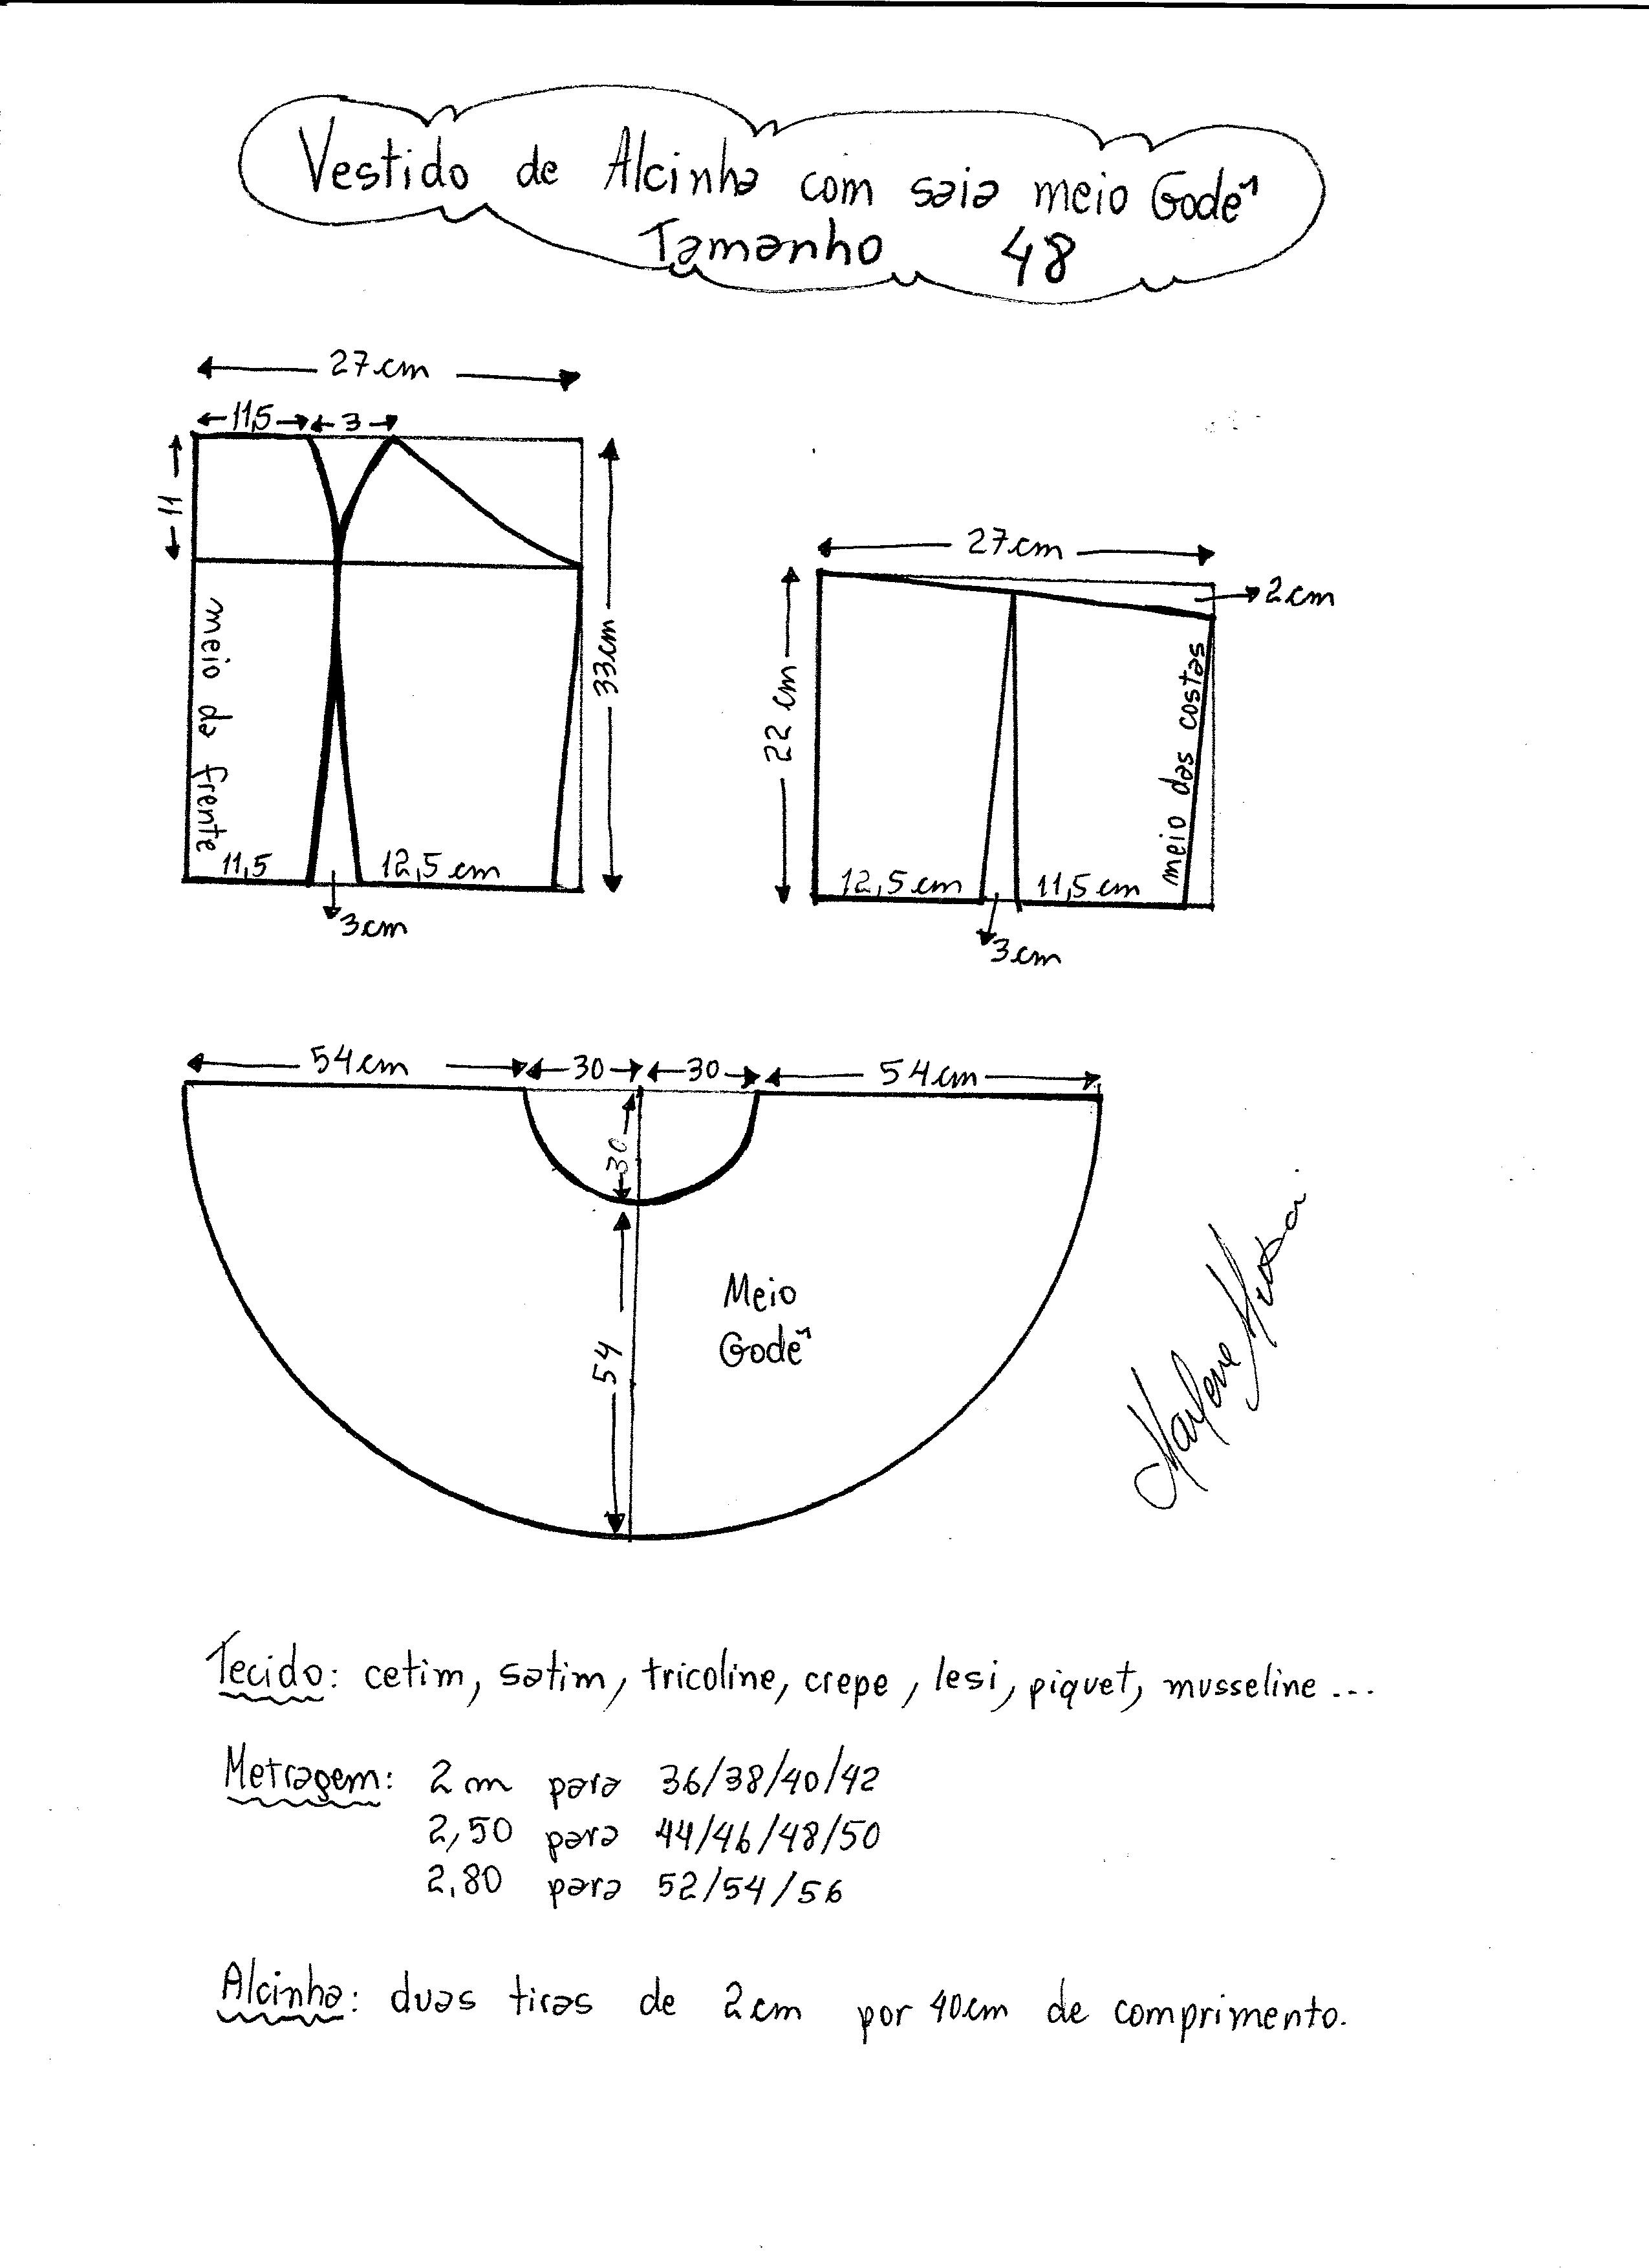 Vestido de Alcinha com saia meio Godê
Tamanho 48
27cm
11,5 3
11
33cm
meio da frente
11,5 12,5 cm
3cm
27cm
2cm
22 cm
meio das costas
12,5cm 11,5cm
3cm
54cm 30 30 54cm
30
54
Meio
Godê
Tecido: cetim, satim, tricoline, crepe, lesi, piquet, musseline...
Metragem: 2m para 36/38/40/42
2,50 para 44/46/48/50
2,80 para 52/54/56
Alcinha: duas tiras de 2cm por 40cm de comprimento.